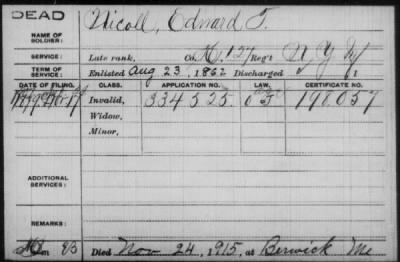 DEAD
NAME OF SOLDIER: Nicoll, Edward F.
SERVICE: Late rank, Co. K, 127 Reg't N.Y. Inf
TERM OF SERVICE: Enlisted Aug 23, 1862 Discharged , 1
DATE OF FILING. CLASS. APPLICATION NO. LAW. CERTIFICATE NO.
Invalid, 334525 198.057
Widow,
Minor,
ADDITIONAL SERVICES:
REMARKS:
Died Nov 24, 1915, at Berwick Me